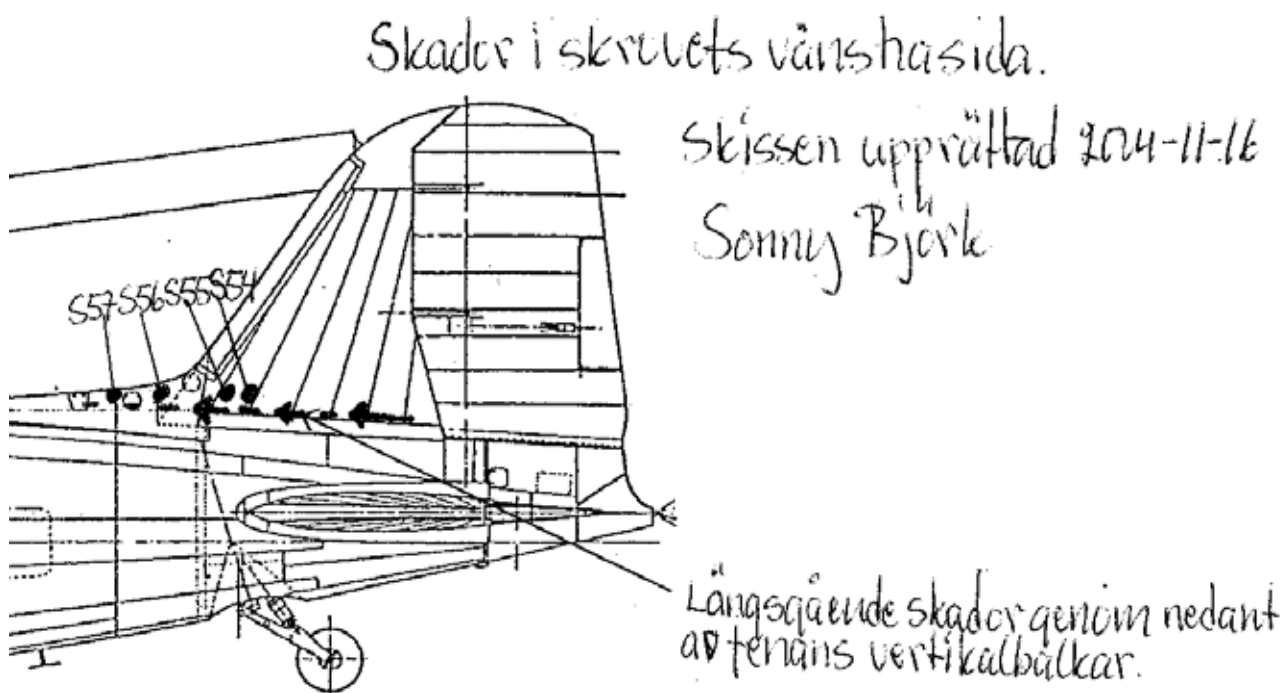 Skador i skrovets vänstra sida.
Skissen upprättad 2004-11-16
Sonny Björk
S57 S56 S55 S54
Längsgående skador genom nedant
av fenans vertikalbalkar.